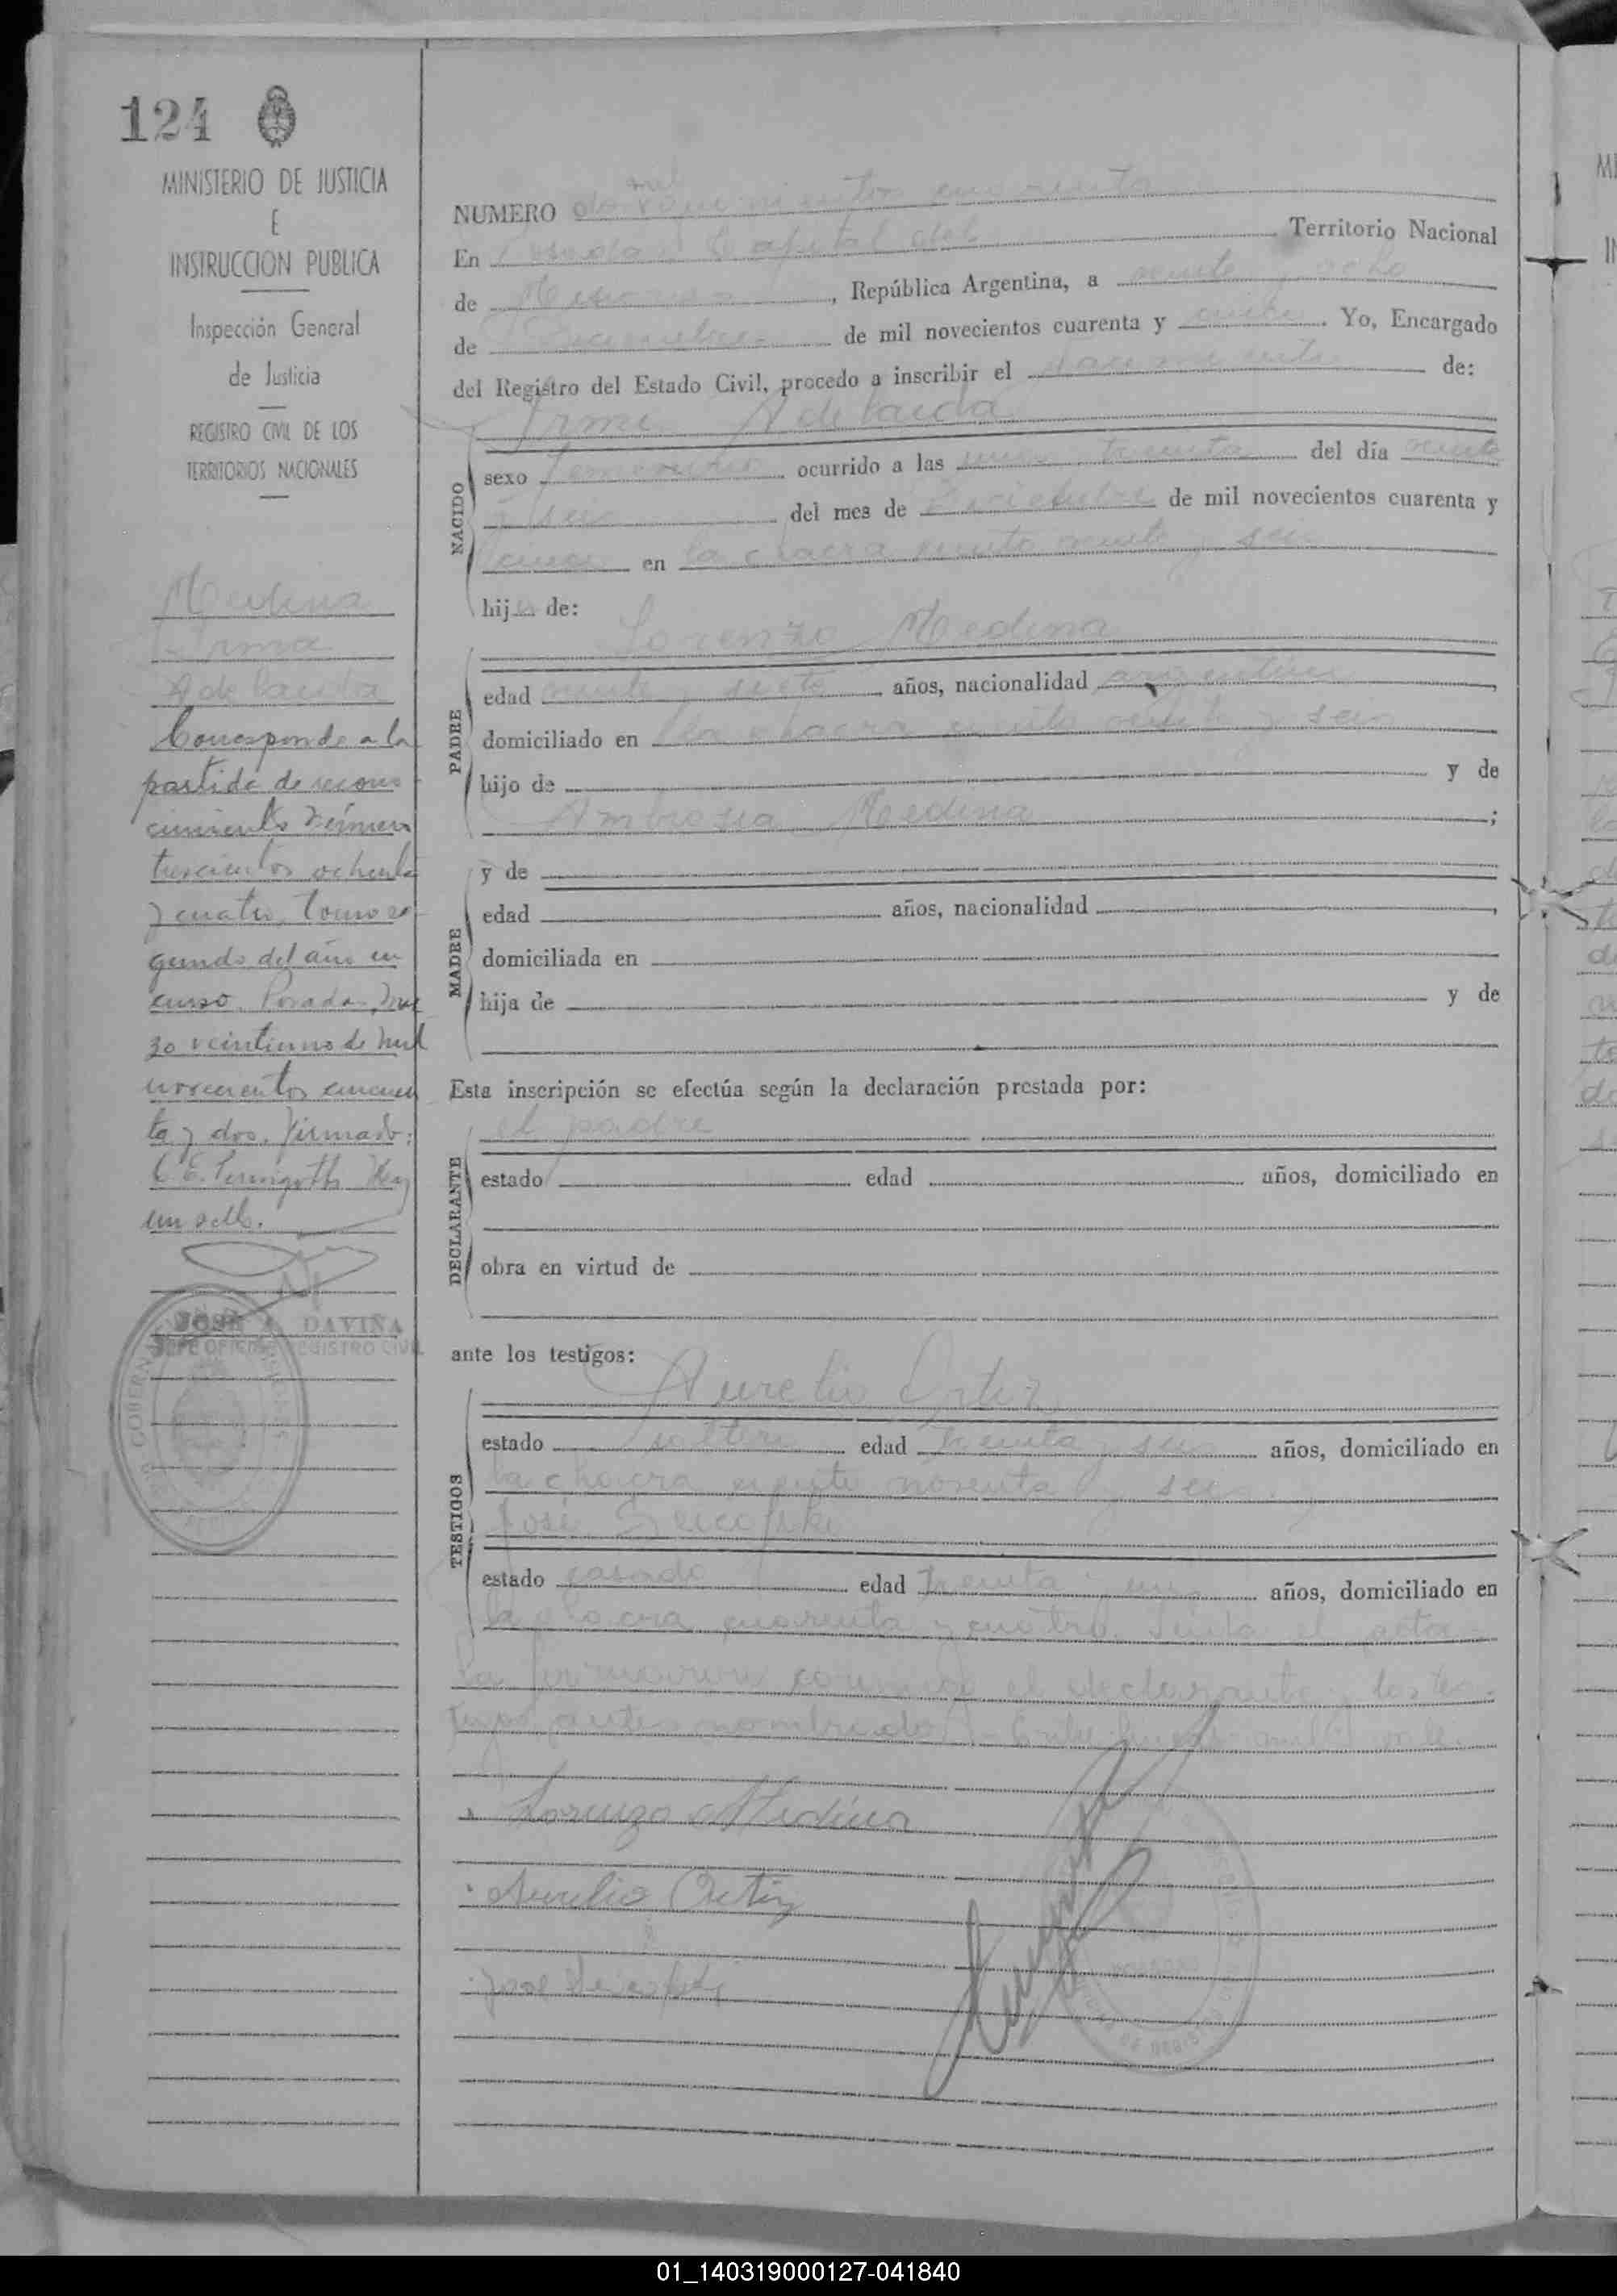 124
MINISTERIO DE JUSTICIA
E
INSTRUCCION PUBLICA
Inspección General
de Justicia
REGISTRO CIVIL DE LOS
TERRITORIOS NACIONALES
Medina
Irma
Adelaida
Corresponde a la
partida de recono
cimiento número
trescientos ochenta
y cuatro, tomo se
gundo del año en
curso. Posadas, mar
zo veintiuno de mil
novecientos cincuen
ta y dos. Firmado:
C. E. Hay
un sello.
JOSE A. DAVIÑA
JEFE OFICINA REGISTRO CIVIL
NUMERO dos mil quinientos cuarenta
En Posadas Capital del Territorio Nacional
de Misiones, República Argentina, a veinte y ocho
de Diciembre de mil novecientos cuarenta y cinco. Yo, Encargado
del Registro del Estado Civil, procedo a inscribir el nacimiento de:
Irma Adelaida
NACIDO
sexo femenino ocurrido a las una treinta del día veinte
y seis del mes de Diciembre de mil novecientos cuarenta y
cinco en la chacra ciento veinte y seis
hija de:
PADRE
Lorenzo Medina
edad veinte y siete años, nacionalidad argentina,
domiciliado en la chacra ciento veinte y seis
hijo de y de
Ambrosia Medina;
MADRE
y de
edad años, nacionalidad ,
domiciliada en
hija de y de
Esta inscripción se efectúa según la declaración prestada por:
DECLARANTE
el padre
estado edad años, domiciliado en
obra en virtud de
ante los testigos:
TESTIGOS
Aurelio Ortiz
estado soltero edad treinta y seis años, domiciliado en
la chacra ciento noventa y seis y
José
estado casado edad treinta y uno años, domiciliado en
la chacra cuarenta y cuatro. Leida el acta
la firmaron conmigo el declarante y los tes-
tigos antes nombrados. vale
Lorenzo Medina
Aurelio Ortiz
José
01_140319000127-041840